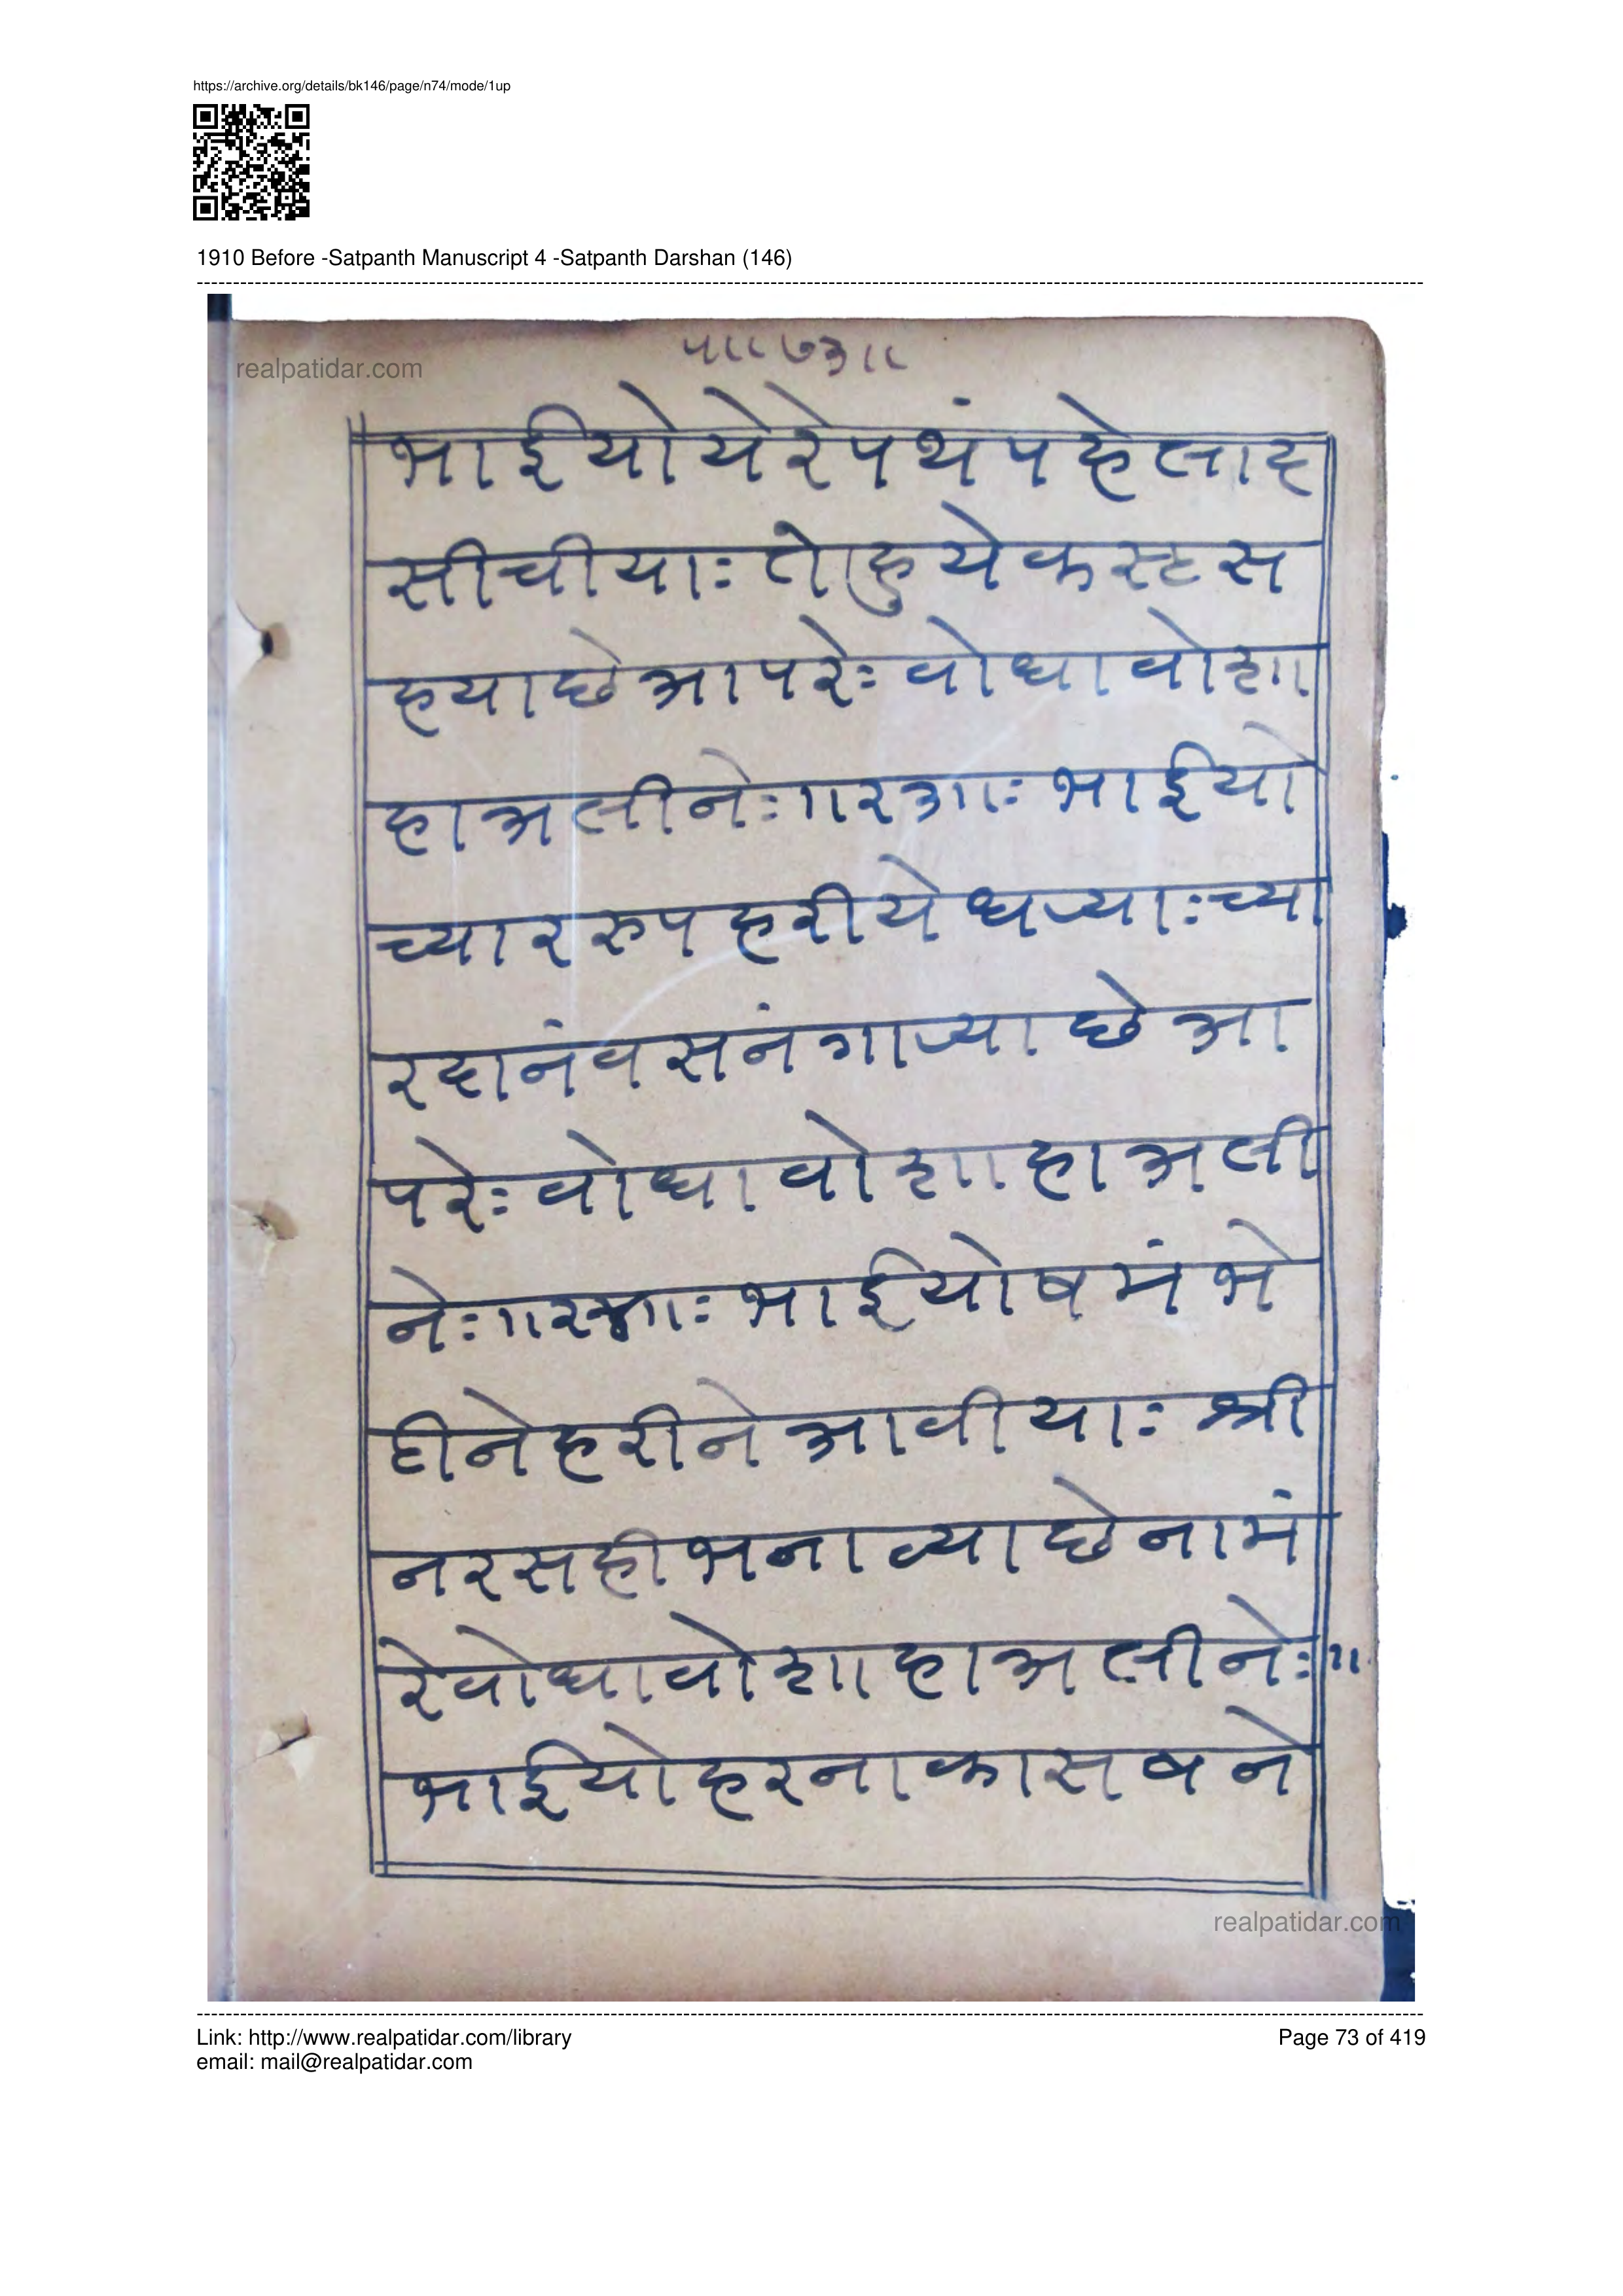 https://archive.org/details/bk146/page/n74/mode/1up
1910 Before -Satpanth Manuscript 4 -Satpanth Darshan (146)
realpatidar.com
प॥७३॥
भाईयोयेरेपथंपहेलाद
सीचीयाः तेाहुयेकस्टस
हयाछेआपरेः वोधावोशा
हाअलीनेः॥२३॥ः भाईयो
च्याररुपहरीयेधऱ्याःच्या
रदानंवसनंगाऱ्याछेआ
परेः वोधावोशाहाअली
नेः॥२४॥ः भाईयोषमंभे
दीनेहरीनेआवीयाः श्री
नरसहीभनाव्याछेनामं
रेवोधावोशाहाअलीनेः॥
भाईयोहरनाकासबने
realpatidar.com
Link: http://www.realpatidar.com/library
Page 73 of 419
email: mail@realpatidar.com